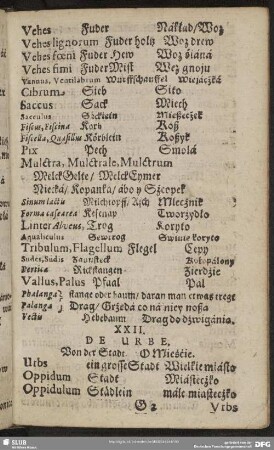 Vehes Fuder Nákład/Woz
Vehes lignorum Fuder holtz Woz drew
Vehes fœni Fuder Hew Woz śiáná
Vehes fimi Fuder Mist Wez gnoju
Vannus, Ventilabrum Wurffschauffel Wiejaczká
Cibrum Sieb Sito
Saccus Sack Miech
Sacculus Säcklein Mieszeczek
Fiscus, Fiscina Korb Kosz
Fiscella, Quasillus Körblein Koszyk
Pix Pech Smołá
Mulctra, Mulctrale, Mulctrum
Melck Gelte/ Melck Eymer
Niecká/ Kopanka/ ábo y Szcopek
Sinum lactis Milchtopff/ Asch Mlecznik
Forma casearea Keßnap Tworzydło
Linter Alveus, Trog Koryto
Aqualiculus Sewtrog Swinie koryto
Tribulum, Flagellum Flegel Cepy
Sudes, Sudis Zaunsteck
Pertica Rickstangen Zierdzie
Vallus, Palus Pfaal Pal
Phalanga stange oder baum/ daran man etwas tregt
Palanga Drag/ Grzędá co ná niey nosiá
Vectis Hebebaum Drag do dźwigánia.
XXII.
DE URBE.
Von der Stadt. O Mieśćie.
Urbs ein grosse Stadt Wielkie miásto
Oppidum Stadt Miasteczko
Oppidulum Städlein máłe miasteczko
G 2 Vrbs
SLUB